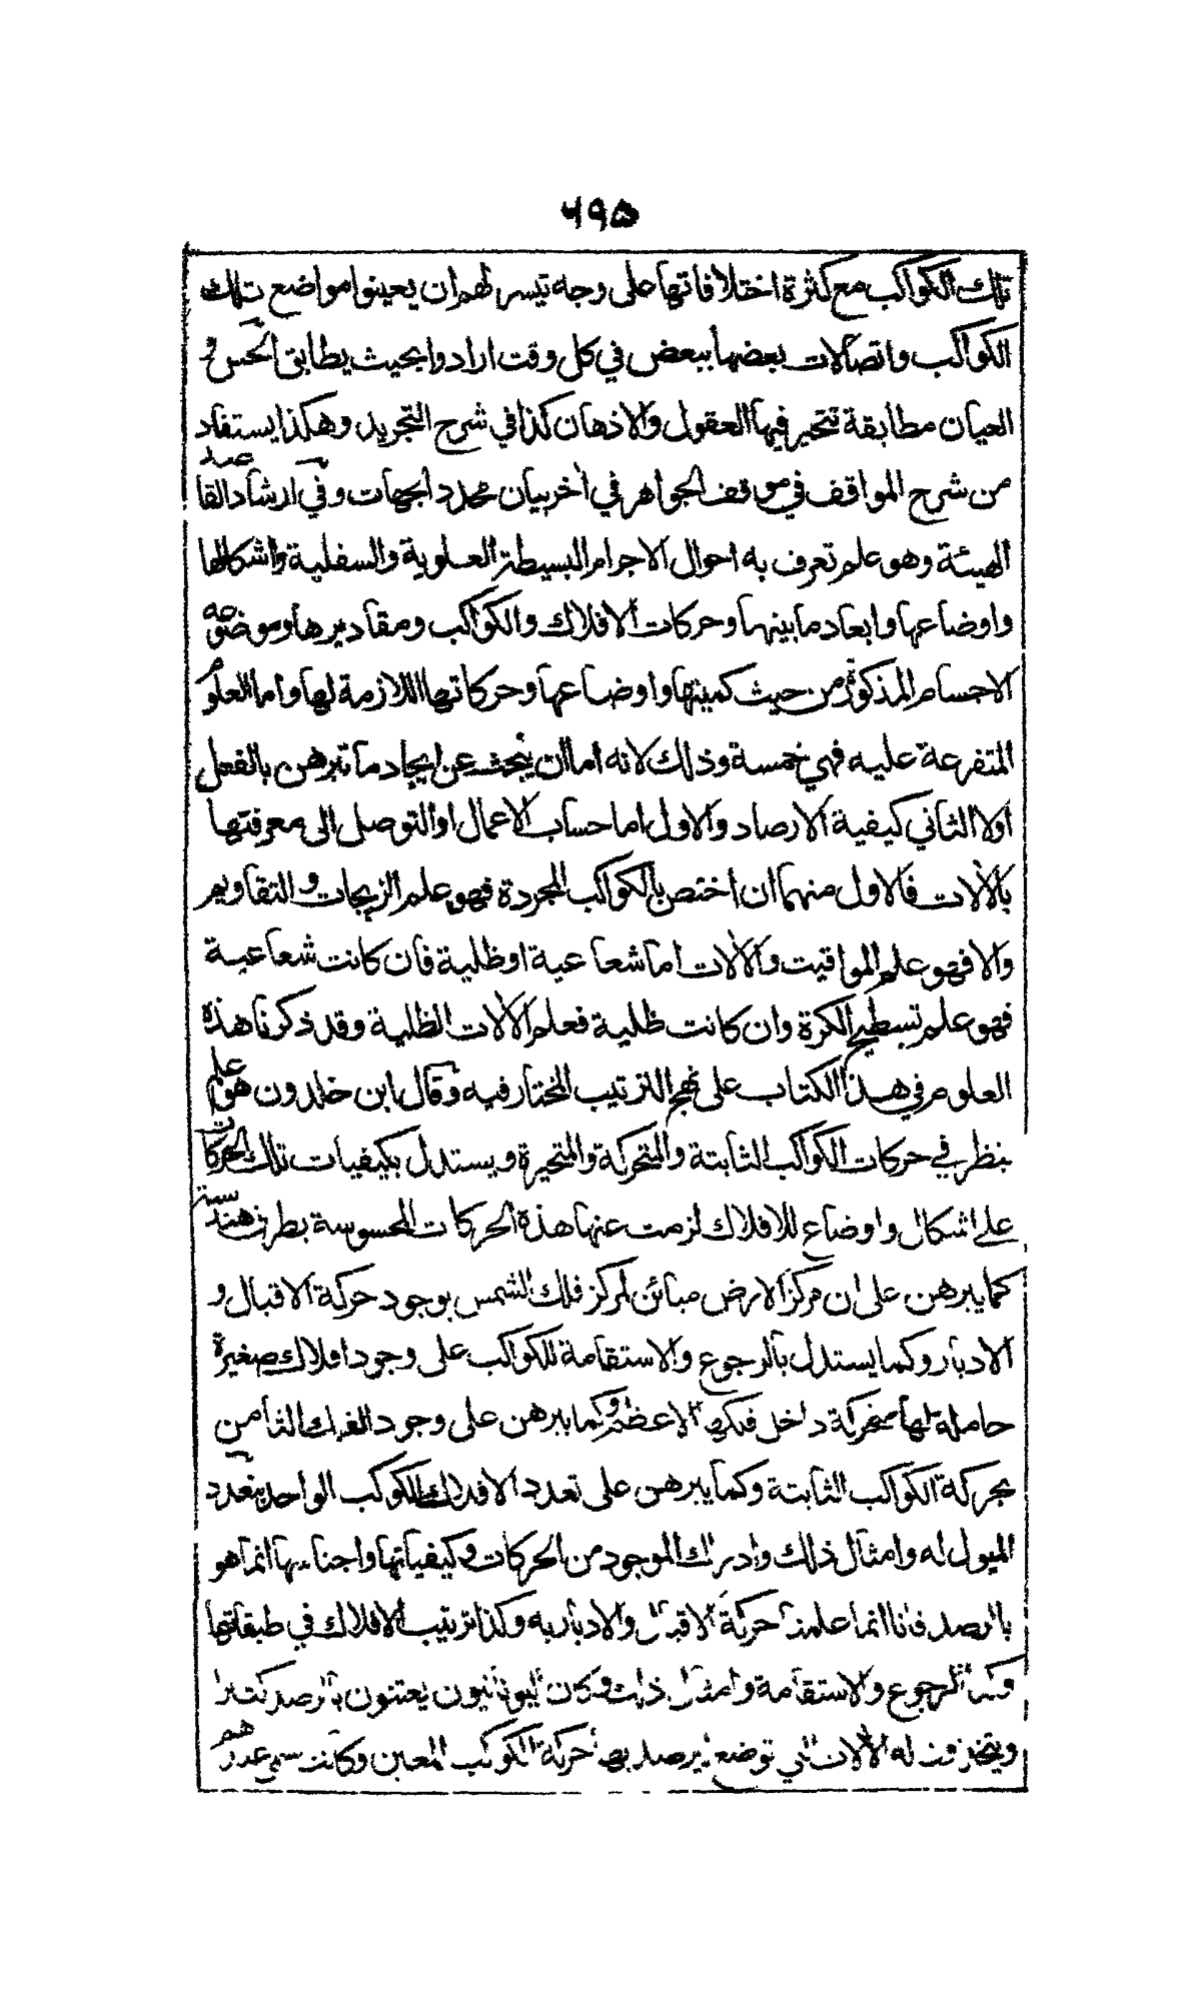 ٦٩٥
تلك الكواكب مع كثرة اختلافاتها على وجه تيسر لهم ان يعينوا مواضع تلك
الكواكب واتصالات بعضها ببعض في كل وقت ارادوا بحيث يطابق الحس و
العيان مطابقة تتحير فيها العقول والاذهان كذا في شرح التجريد وهكذا يستفاد
من شرح المواقف في موقف الجواهر في آخر بيان محدد الجهات وفي ارشاد القاصد
الهيئة وهو علم تعرف به احوال الاجرام البسيطة العلوية والسفلية واشكالها
واوضاعها وابعاد ما بينها وحركات الافلاك والكواكب ومقاديرها وموضوعه
الاجسام المذكورة من حيث كميتها واوضاعها وحركاتها اللازمة لها واما العلوم
المتفرعة عليه فهي خمسة وذلك لانه اما ان يبحث عن ايجاد ما تبرهن بالفعل
اولا الثاني كيفية الارصاد والاول اما حساب الاعمال او التوصل الى معرفتها
بالآلات فالاول منهما ان اختص بالكواكب المجردة فهو علم الزيجات والتقاويم
والا فهو علم المواقيت والآلات اما شعاعية او ظلية فان كانت شعاعية
فهو علم تسطيح الكرة وان كانت ظلية فعلم الآلات الظلية وقد ذكرنا هذه
العلوم في هذا الكتاب على نهج الترتيب المختار فيه وقال ابن خلدون هو علم
ينظر في حركات الكواكب الثابتة والمتحركة والمتحيرة ويستدل بكيفيات تلك الحركات
على اشكال واوضاع للافلاك لزمت عنها هذه الحركات المحسوسة بطرق هندسية
كما يبرهن على ان مركز الارض مبائن لمركز فلك الشمس بوجود حركة الاقبال و
الادبار وكما يستدل بالرجوع والاستقامة للكواكب على وجود افلاك صغيرة
حاملة لها متحركة داخل فلكها الاعظم وكما يبرهن على وجود الفلك الثامن
بحركة الكواكب الثابتة وكما يبرهن على تعدد الافلاك للكوكب الواحد بتعدد
الميول له وامثال ذلك وادراك الموجود من الحركات وكيفياتها واجناسها انما هو
بالرصد فانا انما علمنا حركة الاقبال والادبار به وكذا ترتيب الافلاك في طبقاتها
وكذا الرجوع والاستقامة وامثال ذلك وكان اليونانيون يعتنون بالرصد كثيرا
ويتخذون له الآلات التي توضع ليرصد بها حركة الكوكب المعين وكانت تسمى عندهم